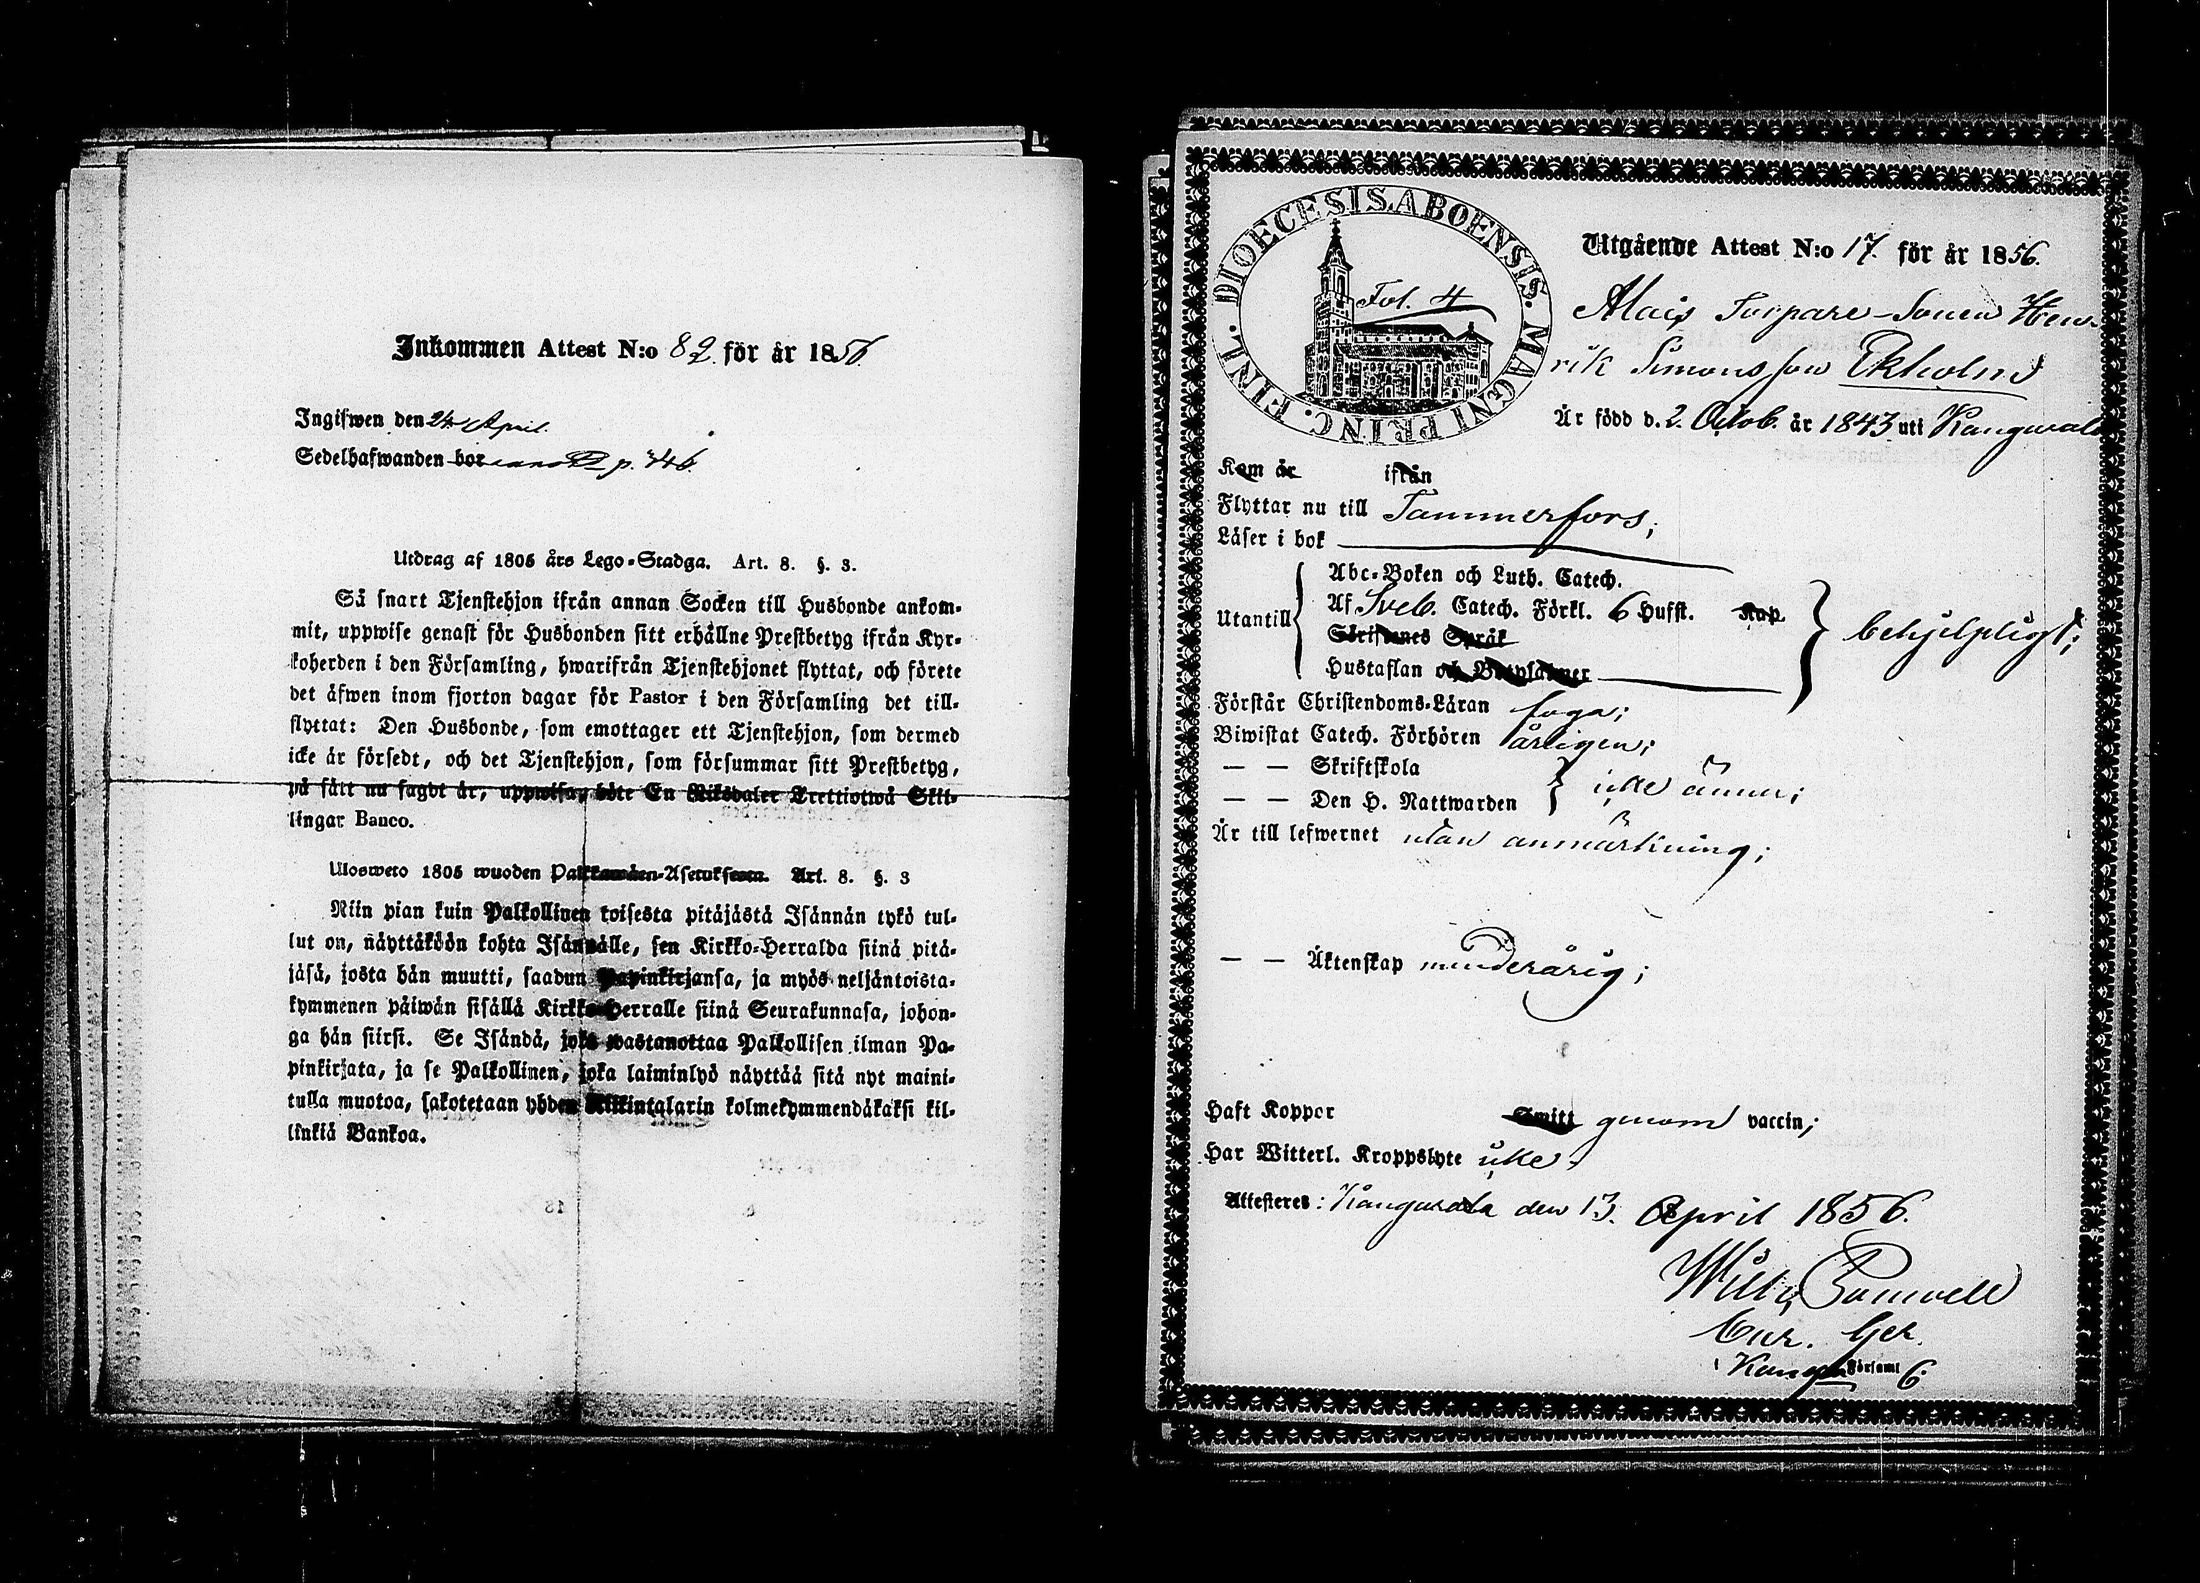 Inkommen Attest N:o 82. för år 1856.
Ingifwen den 24 April.
Sedelhafwanden bor p. 446.
Utdrag af 1805 års Lego-Stadga. Art. 8. §. 3.
Så snart Tjenstehjon ifrån annan Socken till Husbonde ankom-
mit, uppwise genast för Husbonden sitt erhållne Prestbetyg ifrån Kyr-
koherden i den Församling, hwarifrån Tjenstehjonet flyttat, och förete
det äfwen inom fjorton dagar för Pastor i den Församling det till-
flyttat: Den Husbonde, som emottager ett Tjenstehjon, som dermed
icke är försedt, och det Tjenstehjon, som försummar sitt Prestbetyg,
på sätt nu sagdt är, uppwisa, böte En Riksdaler Trettiotwå Skil-
lingar Banco.
Ulosweto 1805 wuoden Palkkawäen-Asetuksesta. Art. 8. §. 3
Niin pian kuin Palkollinen toisesta pitäjästä Isännän tykö tul-
lut on, näyttäköön kohta Isännälle, sen Kirkko-Herralda siinä pitä-
jäsä, josta hän muutti, saadun Papinkirjansa, ja myös neljäntoista-
kymmenen päiwän sisällä Kirkko-Herralle siinä Seurakunnasa, johon-
ga hän siirsi. Se Isändä, joka wastanottaa Palkollisen ilman Pa-
pinkirjata, ja se Palkollinen, joka laiminlyö näyttää sitä nyt maini-
tulla muotoa, sakotetaan yhden Riikintalarin kolmekymmendäkaksi kil-
linkiä Bankoa.
DIOECESIS ABOENSIS. MAGNI PRINC. FINL.
Fol. 4
Utgående Attest N:o 17. för år 1856.
Torpare-Sonen Hen-
rik Simonsson Ekholm
Är född d. 2. Octob. år 1843 uti Kangasala
Kom år ifrån
Flyttar nu till Tammerfors;
Läser i bok
Abc-Boken och Luth. Catech.
Utantill Af Sveb. Catech. Förkl. 6 Hufst. Kap. behjelpligt;
Skriftenes Språk
Hustaflan och Botpsalmer
Förstår Christendoms-Läran
Biwistat Catech. Förhören årligen;
— — Skriftskola
— — Den H. Nattwarden icke ännu;
Är till lefwernet utan anmärkning;
— — Äktenskap minderårig;
Haft Koppor Smitt genom vaccin;
Har Witterl. Kroppslyte icke.
Attesteres: Kangasala den 13. April 1856.
Cur. Ger.
Församl